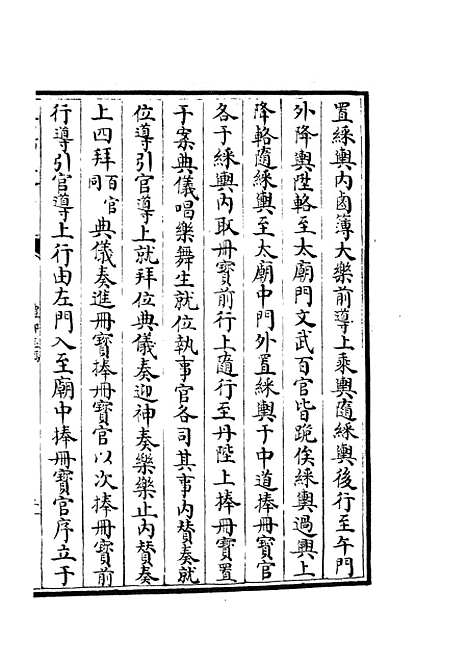 置綵輿內鹵簿大樂前導上乘輿隨綵輿後行至午門
外降輿陞輅至太廟門文武百官皆跪俟綵輿過輿上
降輅隨綵輿至太廟中門外置綵輿于中道捧冊寶官
各于綵輿內取冊寶前行上隨行至丹陛上捧冊寶置
于案典儀唱樂舞生就位執事官各司其事內贊奏就
位導引官導上就拜位典儀奏迎神奏樂樂止內贊奏
上四拜百官同典儀奏進冊寶捧冊寶官以次捧冊寶前
行導引官導上行由左門入至廟中捧冊寶官序立于